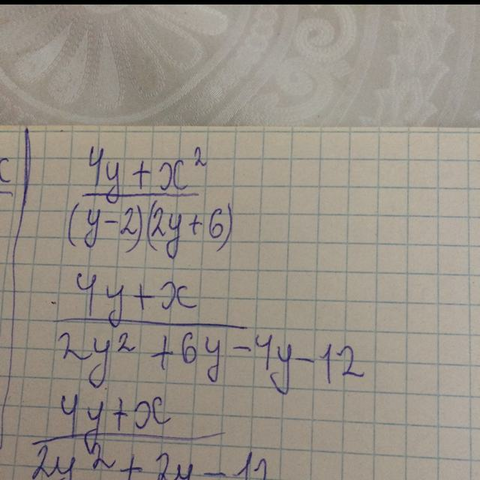 x
4y + x²
(y-2)(2y+6)
4y+x
2y² +6y-4y-12
4y+x
2y² + 2y - 12